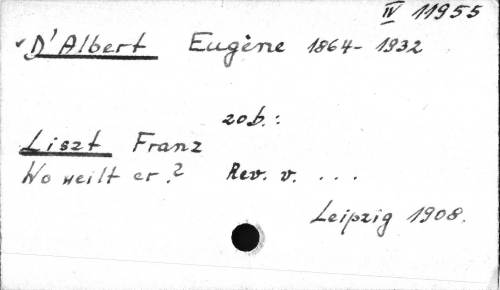 IV 11955
D'Albert Eugène 1864-1932
zob.:
Liszt Franz
Wo weilt er? Rev. v. ...
Leipzig 1908.